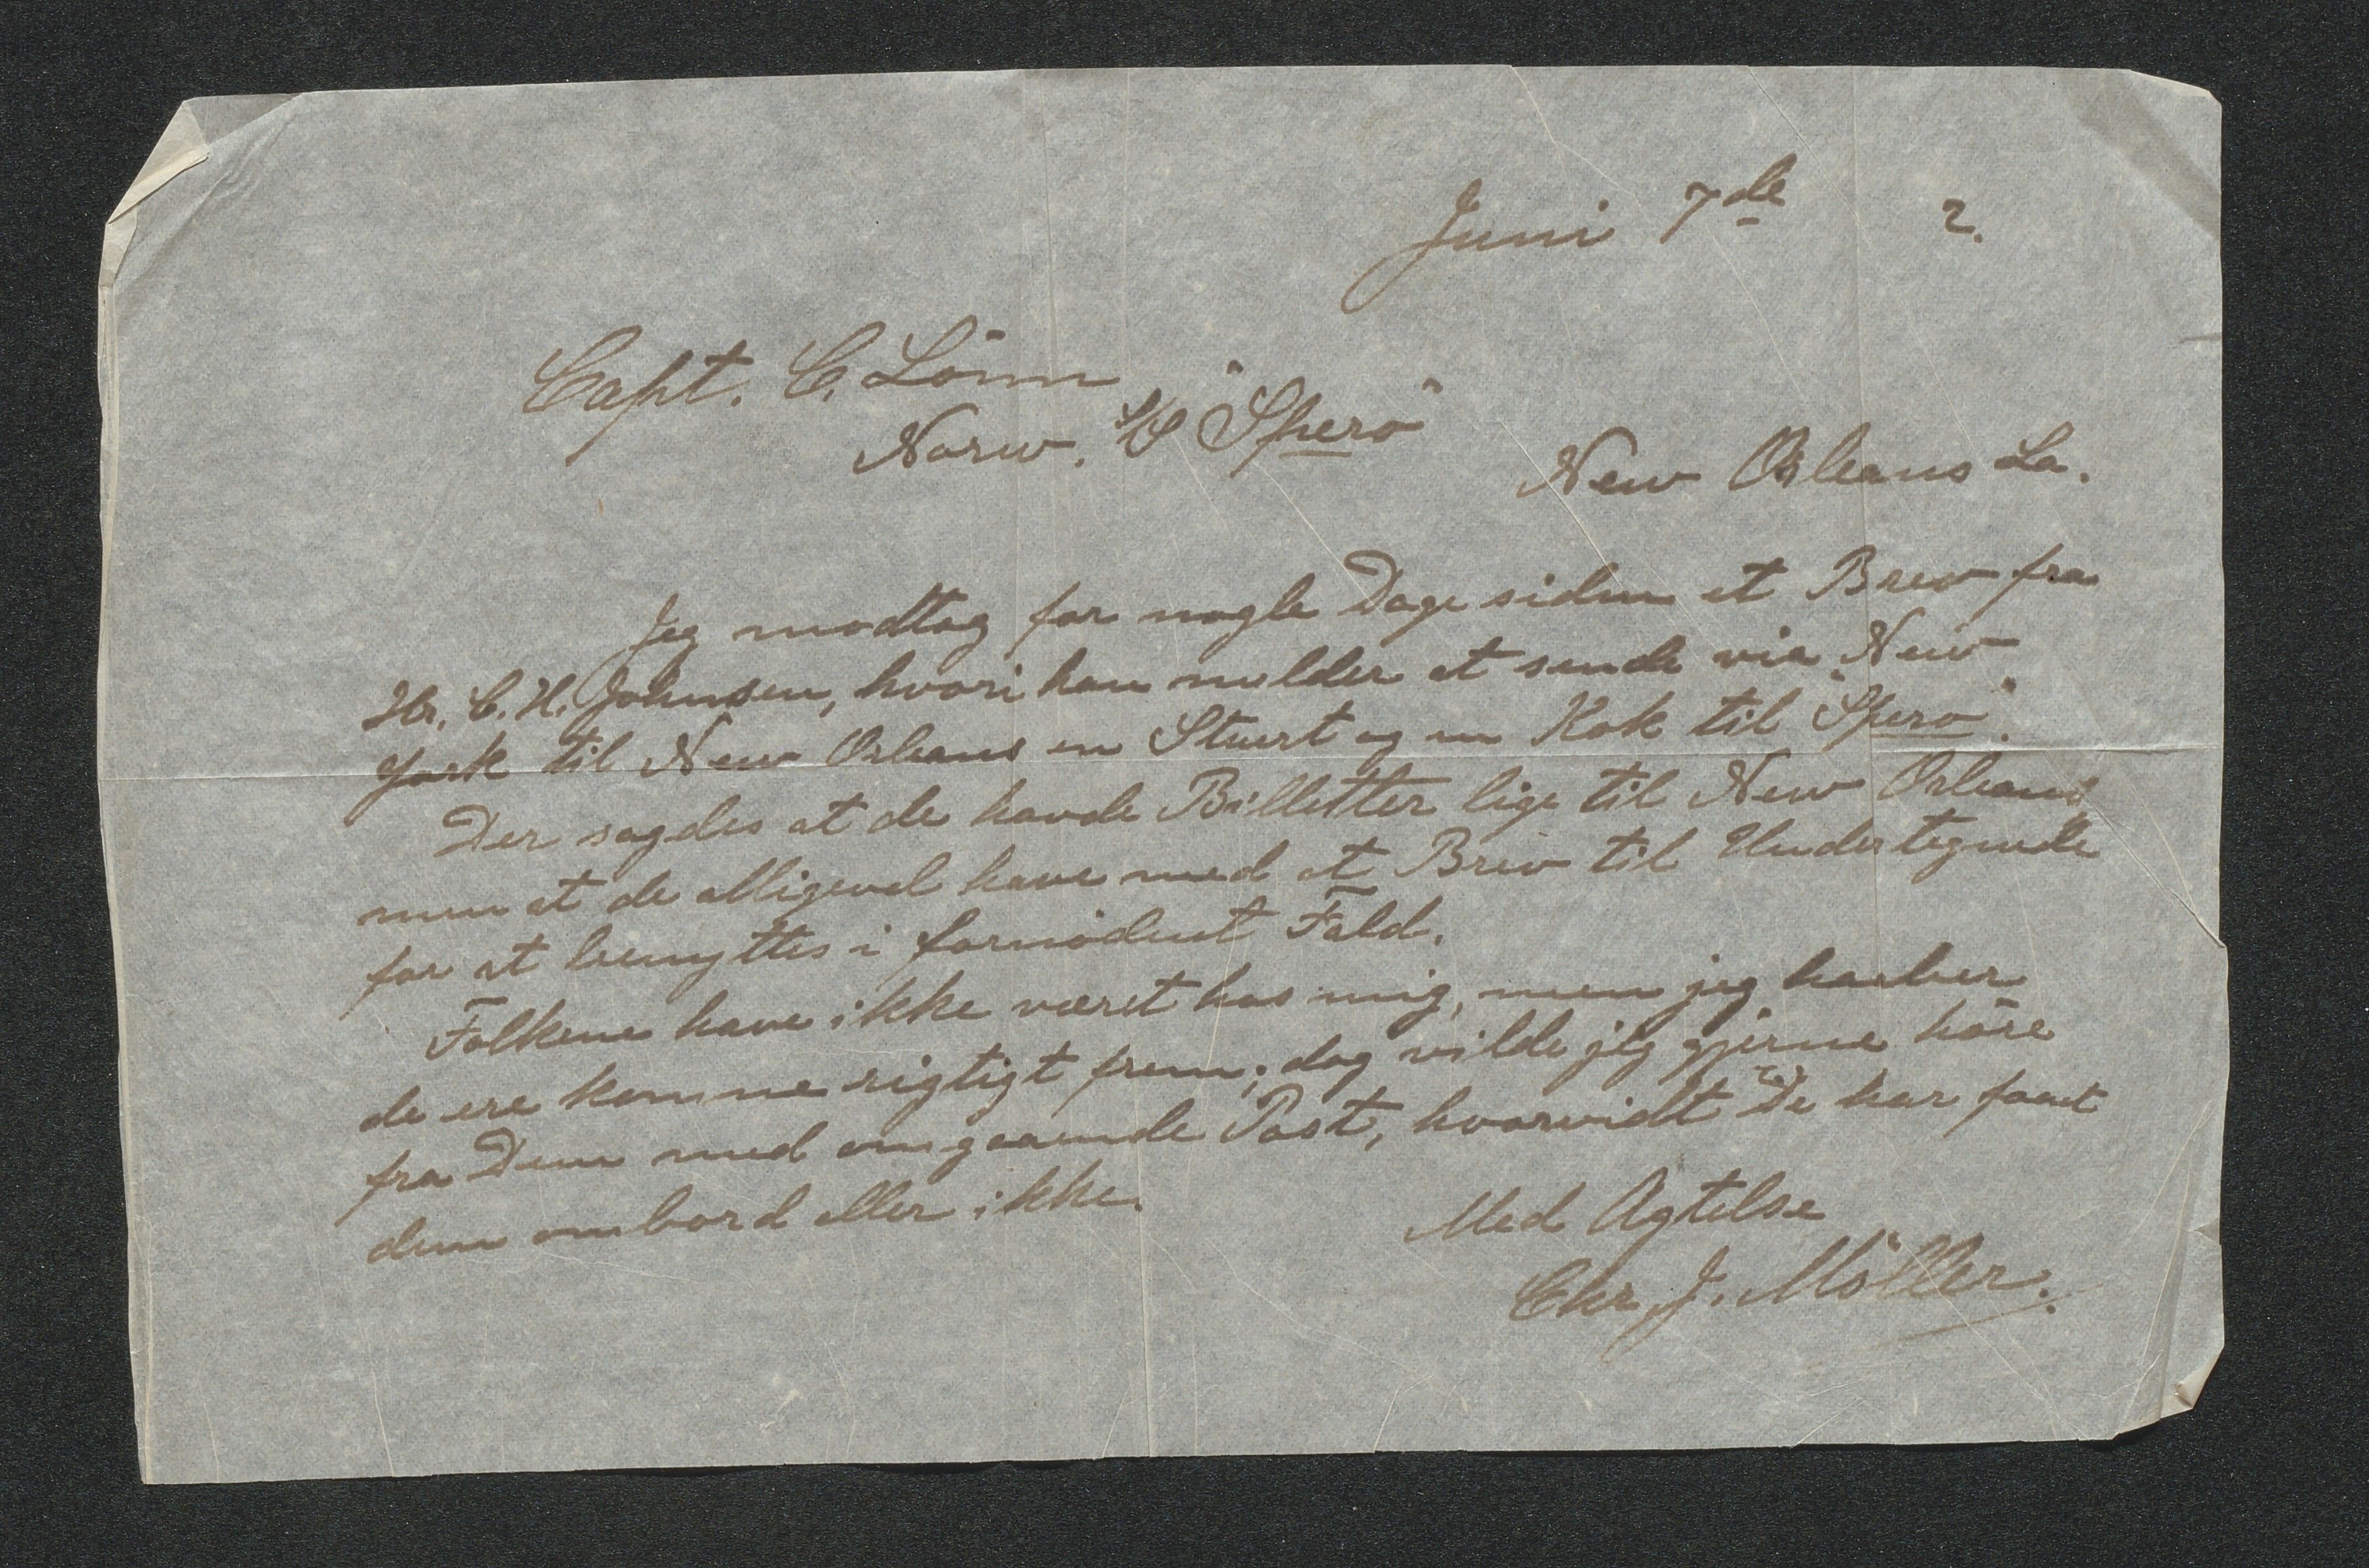 Juni 7de 2.
Capt. C. Lönn
Norw. S/S "Spero"
New Orleans La.
Jeg modtog for nogle Dage siden et Brev fra
Hr. C. H. Johnsen, hvori han melder at sende via New
York til New Orleans en Stuert og en Kok til "Spero".
Der sagdes at de havde Billetter lige til New Orleans
men at de alligevel have med et Brev til Undertegnede
for at benyttes i fornödent Fald.
Folkene have ikke været hos mig, men jeg haaber
de ere komne rigtigt frem; dog vilde jeg gjerne höre
fra Dem med omgaaende Post, hvorvidt De har faaet
dem ombord eller ikke.
Med Agtelse
Chr. J. Möller.